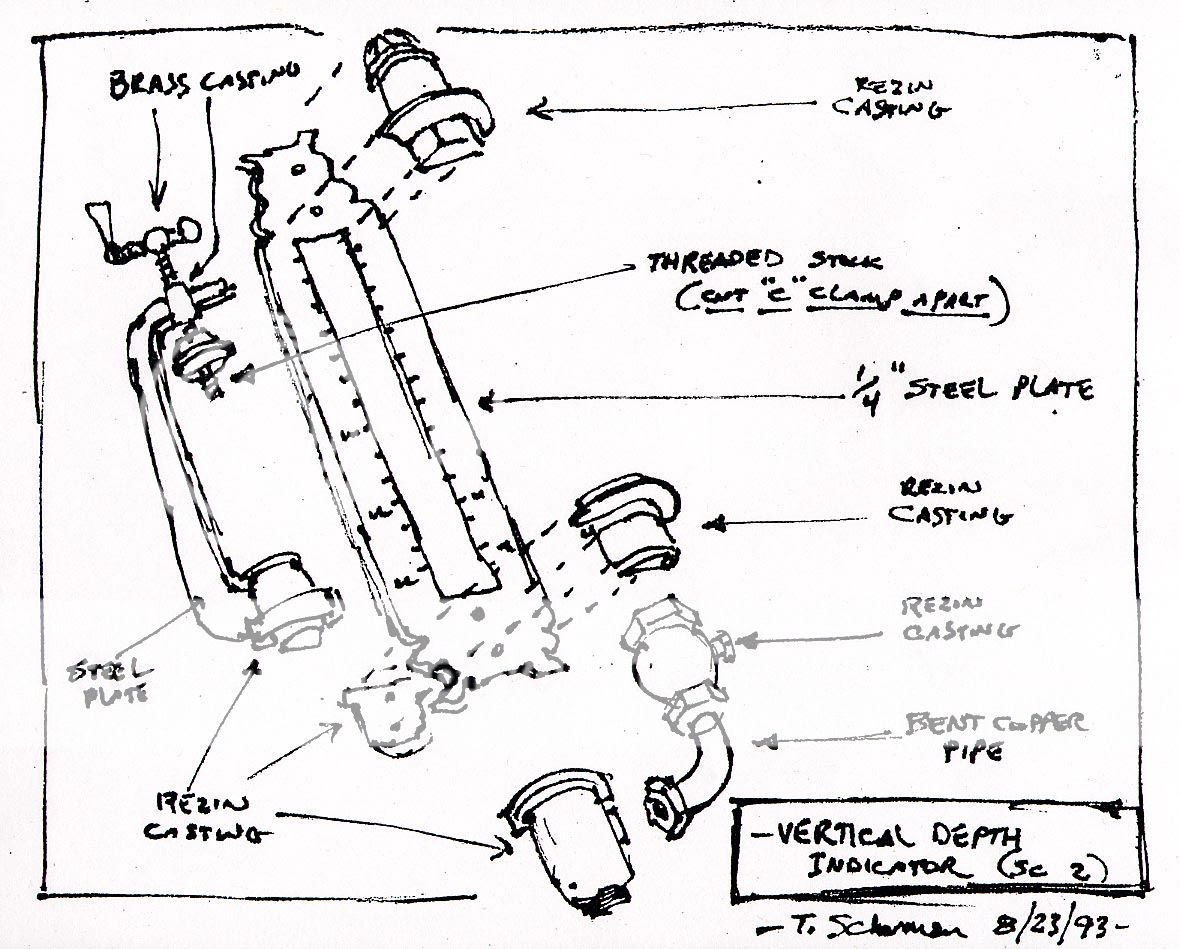 BRASS CASTING
REZIN
CASTING
THREADED STOCK
(CUT "C" CLAMP APART)
1/4" STEEL PLATE
REZIN
CASTING
REZIN
CASTING
STEEL
PLATE
BENT COPPER
PIPE
REZIN
CASTING
-VERTICAL DEPTH
INDICATOR (SC 2)
- T. Scherman 8/23/93-